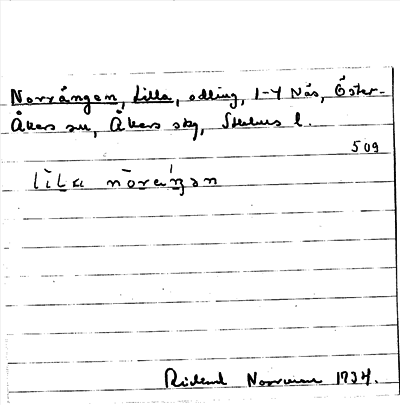 Norrängen, Lilla, odling, 1-4 Näs, Öster-
Åkers sn, Åkers skg, Sthlms l.
509
lila nöräŋən
Rickard Norrman 1934.